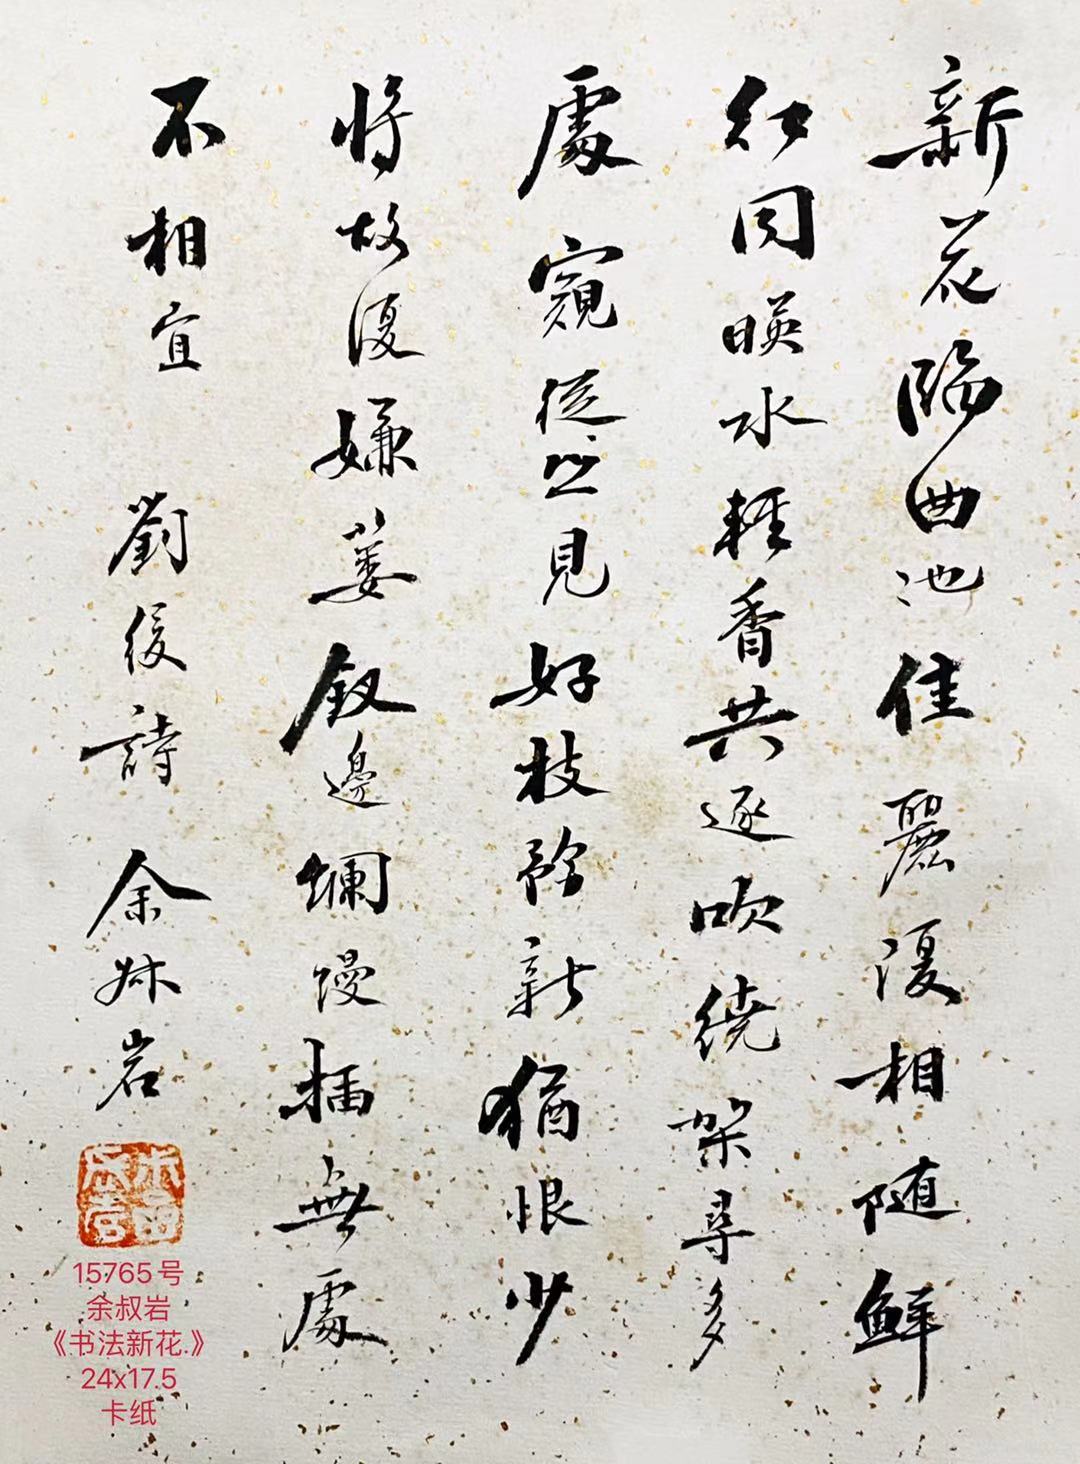 新花臨曲池佳麗復相随鲜
红同暎水輕香共逐吹繞架尋多
處窺從見好枝矜新猶恨少
将故復嫌萎釵邊爛熳插無處
不相宜 劉緩詩 余叔岩
15765号
余叔岩
《书法新花.》
24x17.5
卡纸